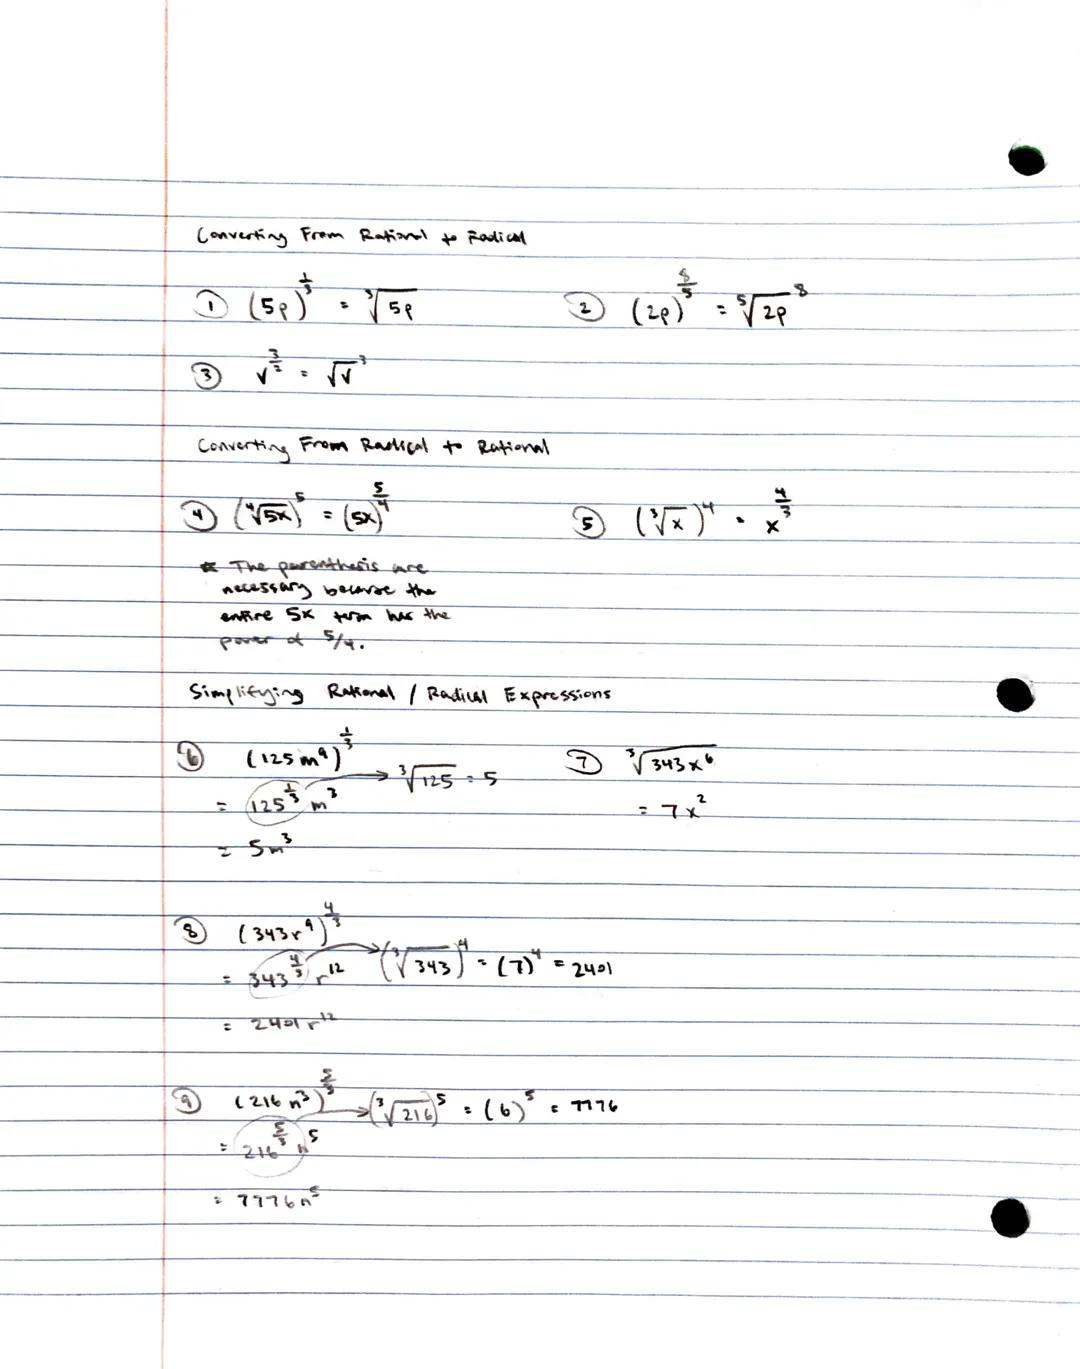 Converting From Rational to Radical
① (5p)^(1/3) = ∛(5p)
② (2p)^(8/5) = ⁵√(2p)^8
③ v^(3/2) = √v^3
Converting From Radical to Rational
④ (⁴√(5x))^5 = (5x)^(5/4)
⑤ (∛x)^4 = x^(4/3)
* The parenthesis are
necessary because the
entire 5x term has the
power of 5/4.
Simplifying Rational / Radical Expressions
⑥ (125m^9)^(1/3)
= 125^(1/3) m^3 → ∛125 = 5
= 5m^3
⑦ ∛(343x^6)
= 7x^2
⑧ (343r^9)^(4/3)
= 343^(4/3) r^12 → (∛343)^4 = (7)^4 = 2401
= 2401r^12
⑨ (216n^3)^(5/3)
= 216^(5/3) n^5 → (∛216)^5 = (6)^5 = 7776
= 7776n^5